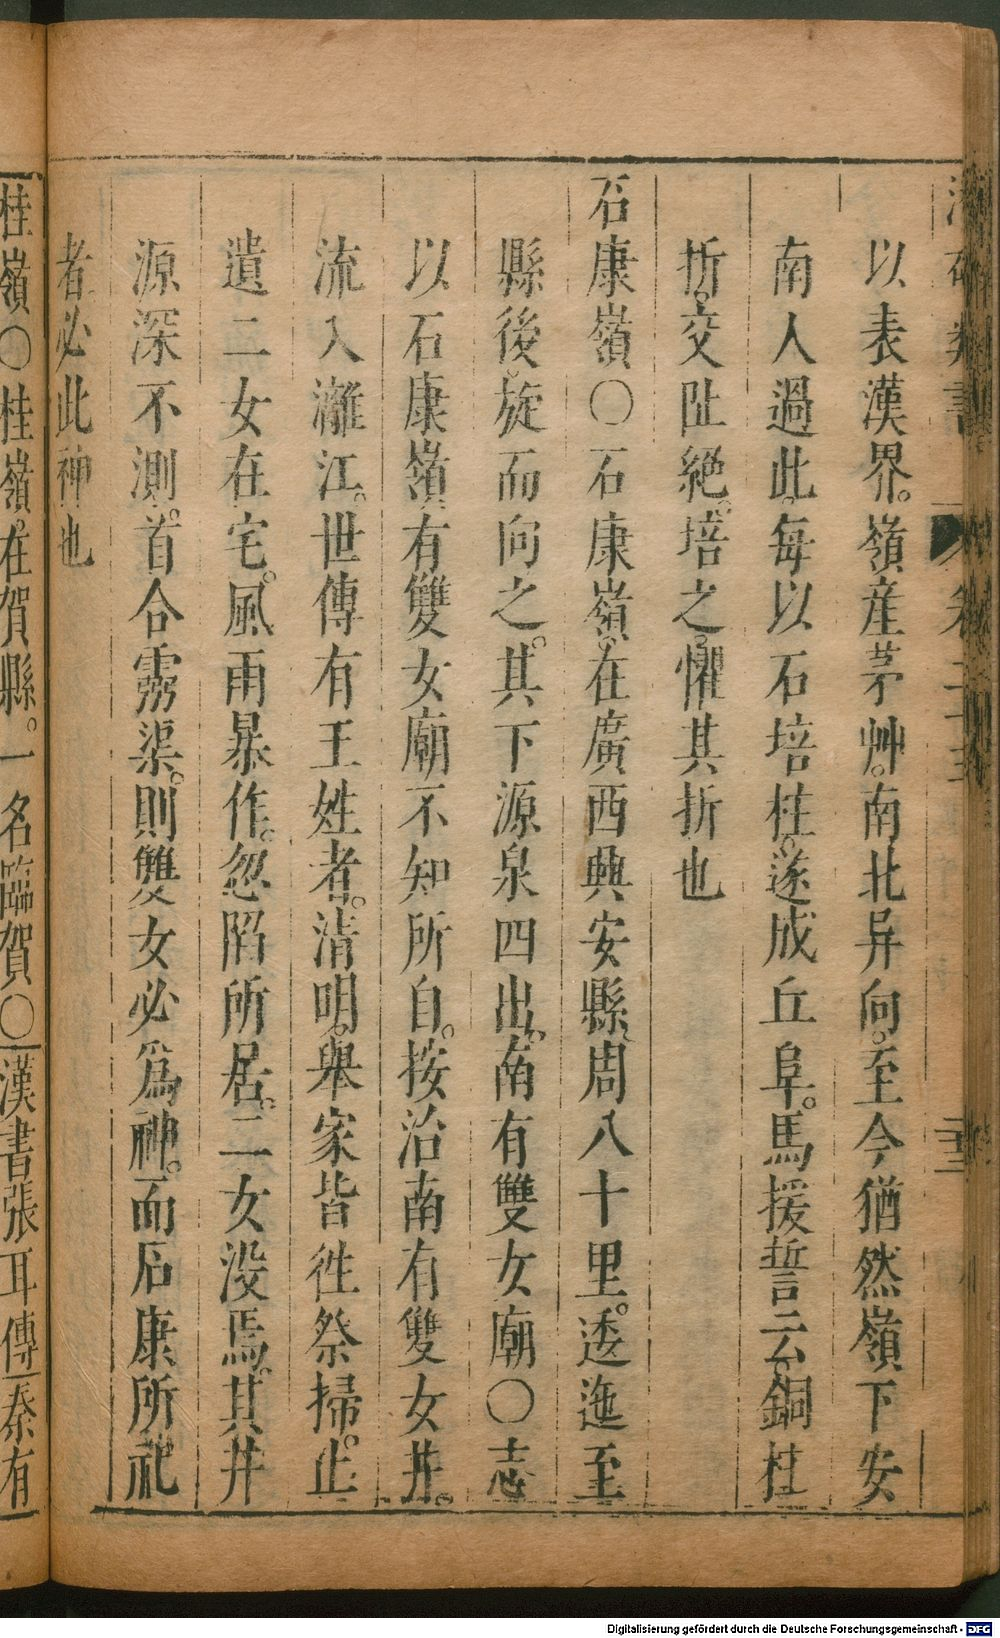 卷二十五
二十三
以表漢界。嶺產茅艸。南北异向。至今猶然嶺下安
南人過此。每以石培柱。遂成丘阜。馬援誓云。銅柱
折。交阯絕。培之。懼其折也
石康嶺〇石康嶺。在廣西興安縣。周八十里。逶迤至
縣後。旋而向之。其下源泉四出。南有雙女廟〇志
以石康嶺。有雙女廟。不知所自。按治南有雙女井。
流入灕江。世傳有王姓者。清明。舉家皆徃祭掃。止
遺二女在宅。風雨暴作。忽陷所居。二女没焉。其井
源深不測。首合靈渠。則雙女必爲神。而石康所祀
者必此神也
桂嶺〇桂嶺。在賀縣。一名臨賀〇漢書張耳傳秦有
Digitalisierung gefördert durch die Deutsche Forschungsgemeinschaft - DFG